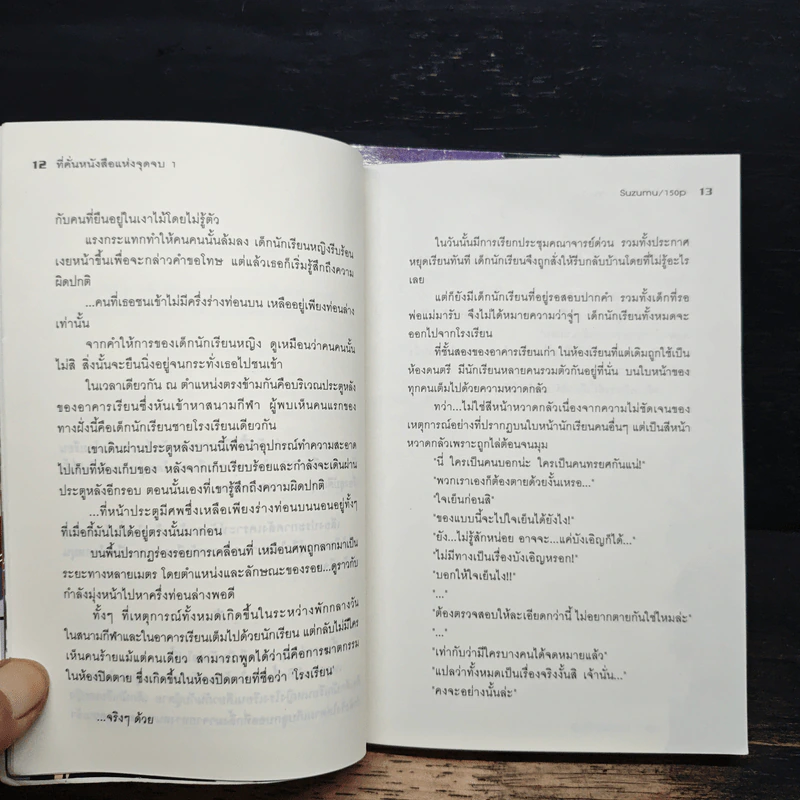 12 ที่คั่นหนังสือแห่งจุดจบ 1
กับคนที่ยืนอยู่ในเงาไม้โดยไม่รู้ตัว
แรงกระแทกทำให้คนคนนั้นล้มลง เด็กนักเรียนหญิงรีบร้อน
เงยหน้าขึ้นเพื่อจะกล่าวคำขอโทษ แต่แล้วเธอก็เริ่มรู้สึกถึงความ
ผิดปกติ
...คนที่เธอชนเข้าไม่มีครึ่งร่างท่อนบน เหลืออยู่เพียงท่อนล่าง
เท่านั้น
จากคำให้การของเด็กนักเรียนหญิง ดูเหมือนว่าคนคนนั้น
ไม่สิ สิ่งนั้นจะยืนนิ่งอยู่จนกระทั่งเธอไปชนเข้า
ในเวลาเดียวกัน ณ ตำแหน่งตรงข้ามกันคือบริเวณประตูหลัง
ของอาคารเรียนซึ่งหันเข้าหาสนามกีฬา ผู้พบเห็นคนแรกของ
ทางฝั่งนี้คือเด็กนักเรียนชายโรงเรียนเดียวกัน
เขาเดินผ่านประตูหลังบานนี้เพื่อนำอุปกรณ์ทำความสะอาด
ไปเก็บที่ห้องเก็บของ หลังจากเก็บเรียบร้อยและกำลังจะเดินผ่าน
ประตูหลังอีกรอบ ตอนนั้นเองที่เขารู้สึกถึงความผิดปกติ
...ที่หน้าประตูมีศพซึ่งเหลือเพียงร่างท่อนบนนอนอยู่ทั้งๆ
ที่เมื่อกี้มันไม่ได้อยู่ตรงนั้นมาก่อน
บนพื้นปรากฏร่องรอยการเคลื่อนที่ เหมือนศพถูกลากมาเป็น
ระยะทางหลายเมตร โดยตำแหน่งและลักษณะของรอย...ดูราวกับ
กำลังมุ่งหน้าไปหาครึ่งท่อนล่างพอดี
ทั้งๆ ที่เหตุการณ์ทั้งหมดเกิดขึ้นในระหว่างพักกลางวัน
ในสนามกีฬาและในอาคารเรียนเต็มไปด้วยนักเรียน แต่กลับไม่มีใคร
เห็นคนร้ายแม้แต่คนเดียว สามารถพูดได้ว่านี่คือการฆาตกรรม
ในห้องปิดตาย ซึ่งเกิดขึ้นในห้องปิดตายที่ชื่อว่า 'โรงเรียน'
...จริงๆ ด้วย
Suzumu/150p 13
ในวันนั้นมีการเรียกประชุมคณาจารย์ด่วน รวมทั้งประกาศ
หยุดเรียนทันที เด็กนักเรียนจึงถูกสั่งให้รีบกลับบ้านโดยที่ไม่รู้อะไร
เลย
แต่ก็ยังมีเด็กนักเรียนที่อยู่รอสอบปากคำ รวมทั้งเด็กที่รอ
พ่อแม่มารับ จึงไม่ได้หมายความว่าจู่ๆ เด็กนักเรียนทั้งหมดจะ
ออกไปจากโรงเรียน
ที่ชั้นสองของอาคารเรียนเก่า ในห้องเรียนที่แต่เดิมถูกใช้เป็น
ห้องดนตรี มีนักเรียนหลายคนรวมตัวกันอยู่ที่นั่น บนใบหน้าของ
ทุกคนเต็มไปด้วยความหวาดกลัว
ทว่า...ไม่ใช่สีหน้าหวาดกลัวเนื่องจากความไม่ชัดเจนของ
เหตุการณ์อย่างที่ปรากฏบนใบหน้านักเรียนคนอื่นๆ แต่เป็นสีหน้า
หวาดกลัวเพราะถูกไล่ต้อนจนมุม
"นี่ ใครเป็นคนบอกน่ะ ใครเป็นคนทรยศกันแน่!"
"พวกเราเองก็ต้องตายด้วยงั้นเหรอ..."
"ใจเย็นก่อนสิ"
"ของแบบนี้จะไปใจเย็นได้ยังไง!"
"ยัง...ไม่รู้สักหน่อย อาจจะ...แค่บังเอิญก็ได้..."
"ไม่มีทางเป็นเรื่องบังเอิญหรอก!"
"บอกให้ใจเย็นไง!!"
"..."
"ต้องตรวจสอบให้ละเอียดกว่านี้ ไม่อยากตายกันใช่ไหมล่ะ"
"..."
"เท่ากับว่ามีใครบางคนได้จดหมายแล้ว"
"แปลว่าทั้งหมดเป็นเรื่องจริงงั้นสิ เจ้านั่น..."
"คงจะอย่างนั้นล่ะ"